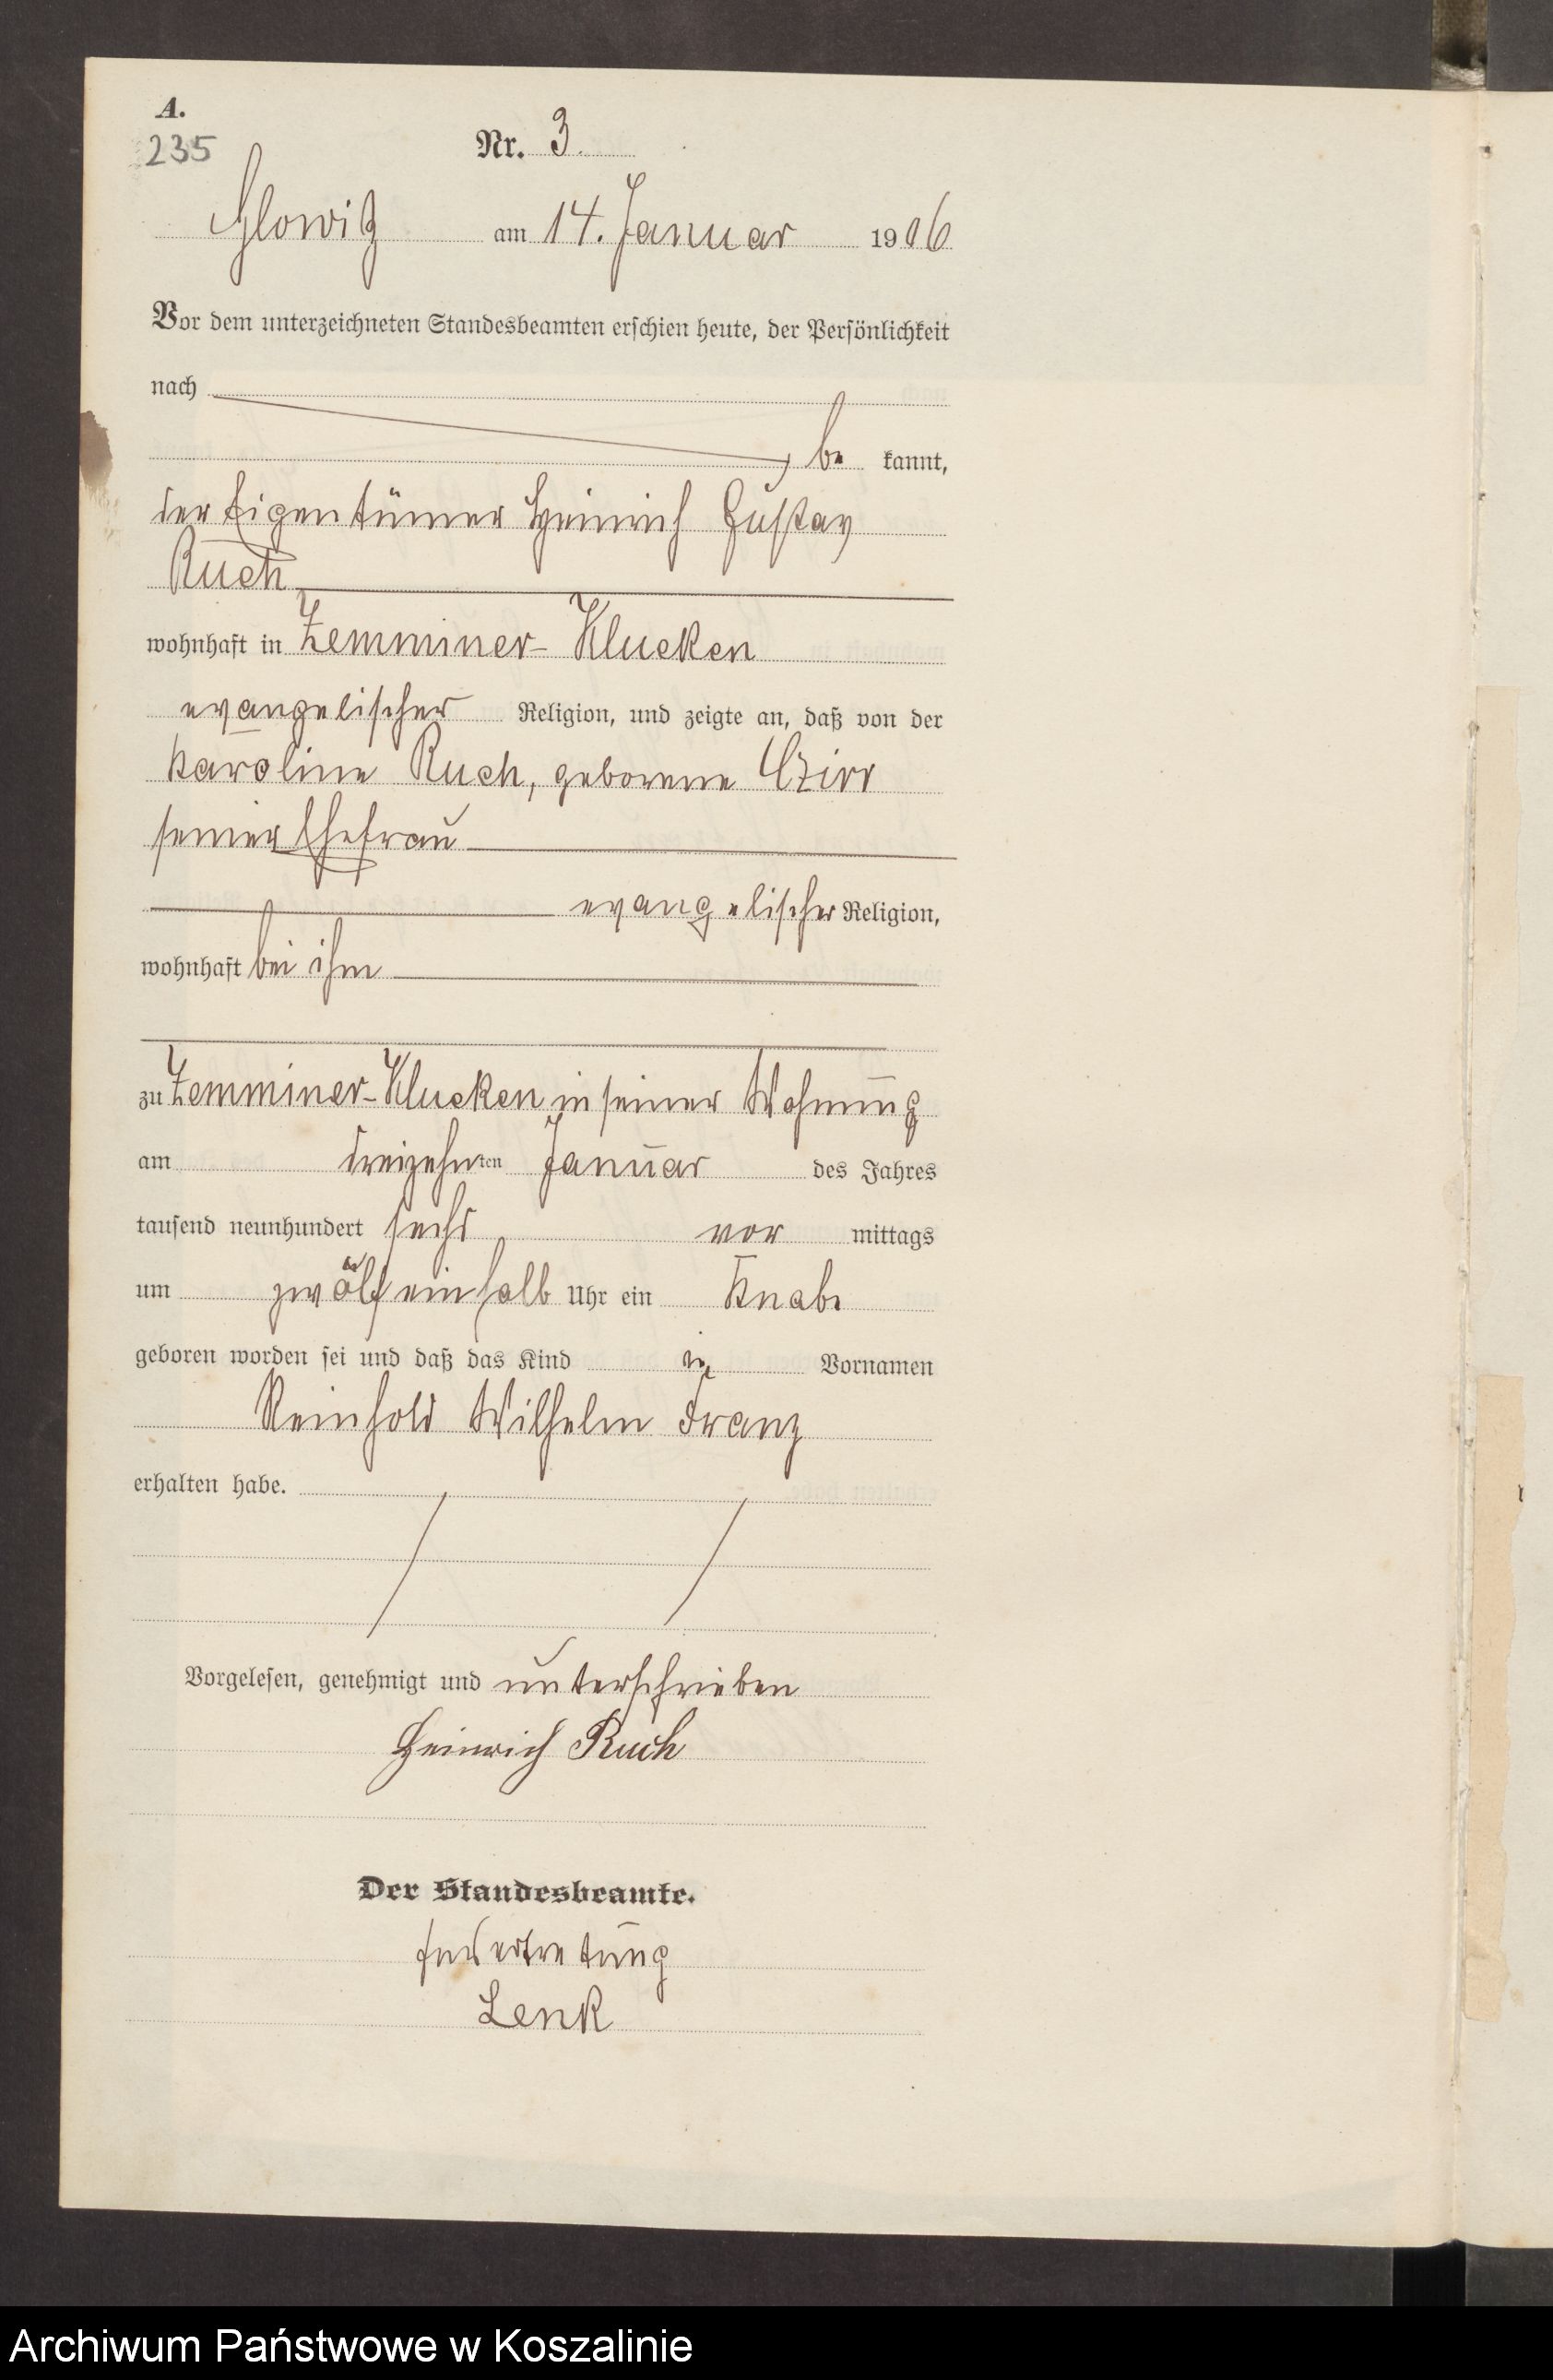 A.
235
Nr. 3.
Glowitz am 14. Januar 1906
Vor dem unterzeichneten Standesbeamten erschien heute, der Persönlichkeit
nach
, be kannt,
der Eigentümer Heinrich Gustav
Ruch
wohnhaft in Zemminer-Klucken
evangelischer Religion, und zeigte an, daß von der
Karoline Ruch, geborene Czirr
seiner Ehefrau
evangelischer Religion,
wohnhaft bei ihm
zu Zemminer-Klucken in seiner Wohnung
am dreizehnten Januar des Jahres
tausend neunhundert sechs vor mittags
um zwölfeinhalb Uhr ein Knabe
geboren worden sei und daß das Kind die Vornamen
Reinhold Wilhelm Franz
erhalten habe.
Vorgelesen, genehmigt und unterschrieben
Heinrich Ruch
Der Standesbeamte.
In Vertretung
Lenk
Archiwum Państwowe w Koszalinie